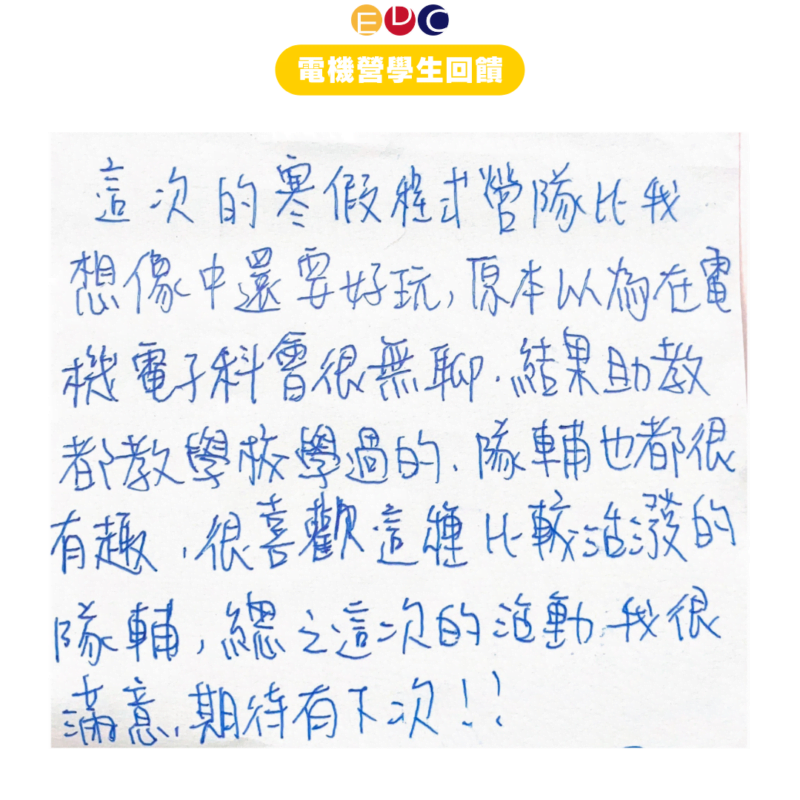 EDC
電機營學生回饋
這次的寒假程式營隊比我
想像中還要好玩,原本以為在電
機電子科會很無聊.結果助教
都教學校學過的、隊輔也都很
有趣,很喜歡這種比較活潑的
隊輔,總之這次的活動,我很
滿意,期待有下次!!